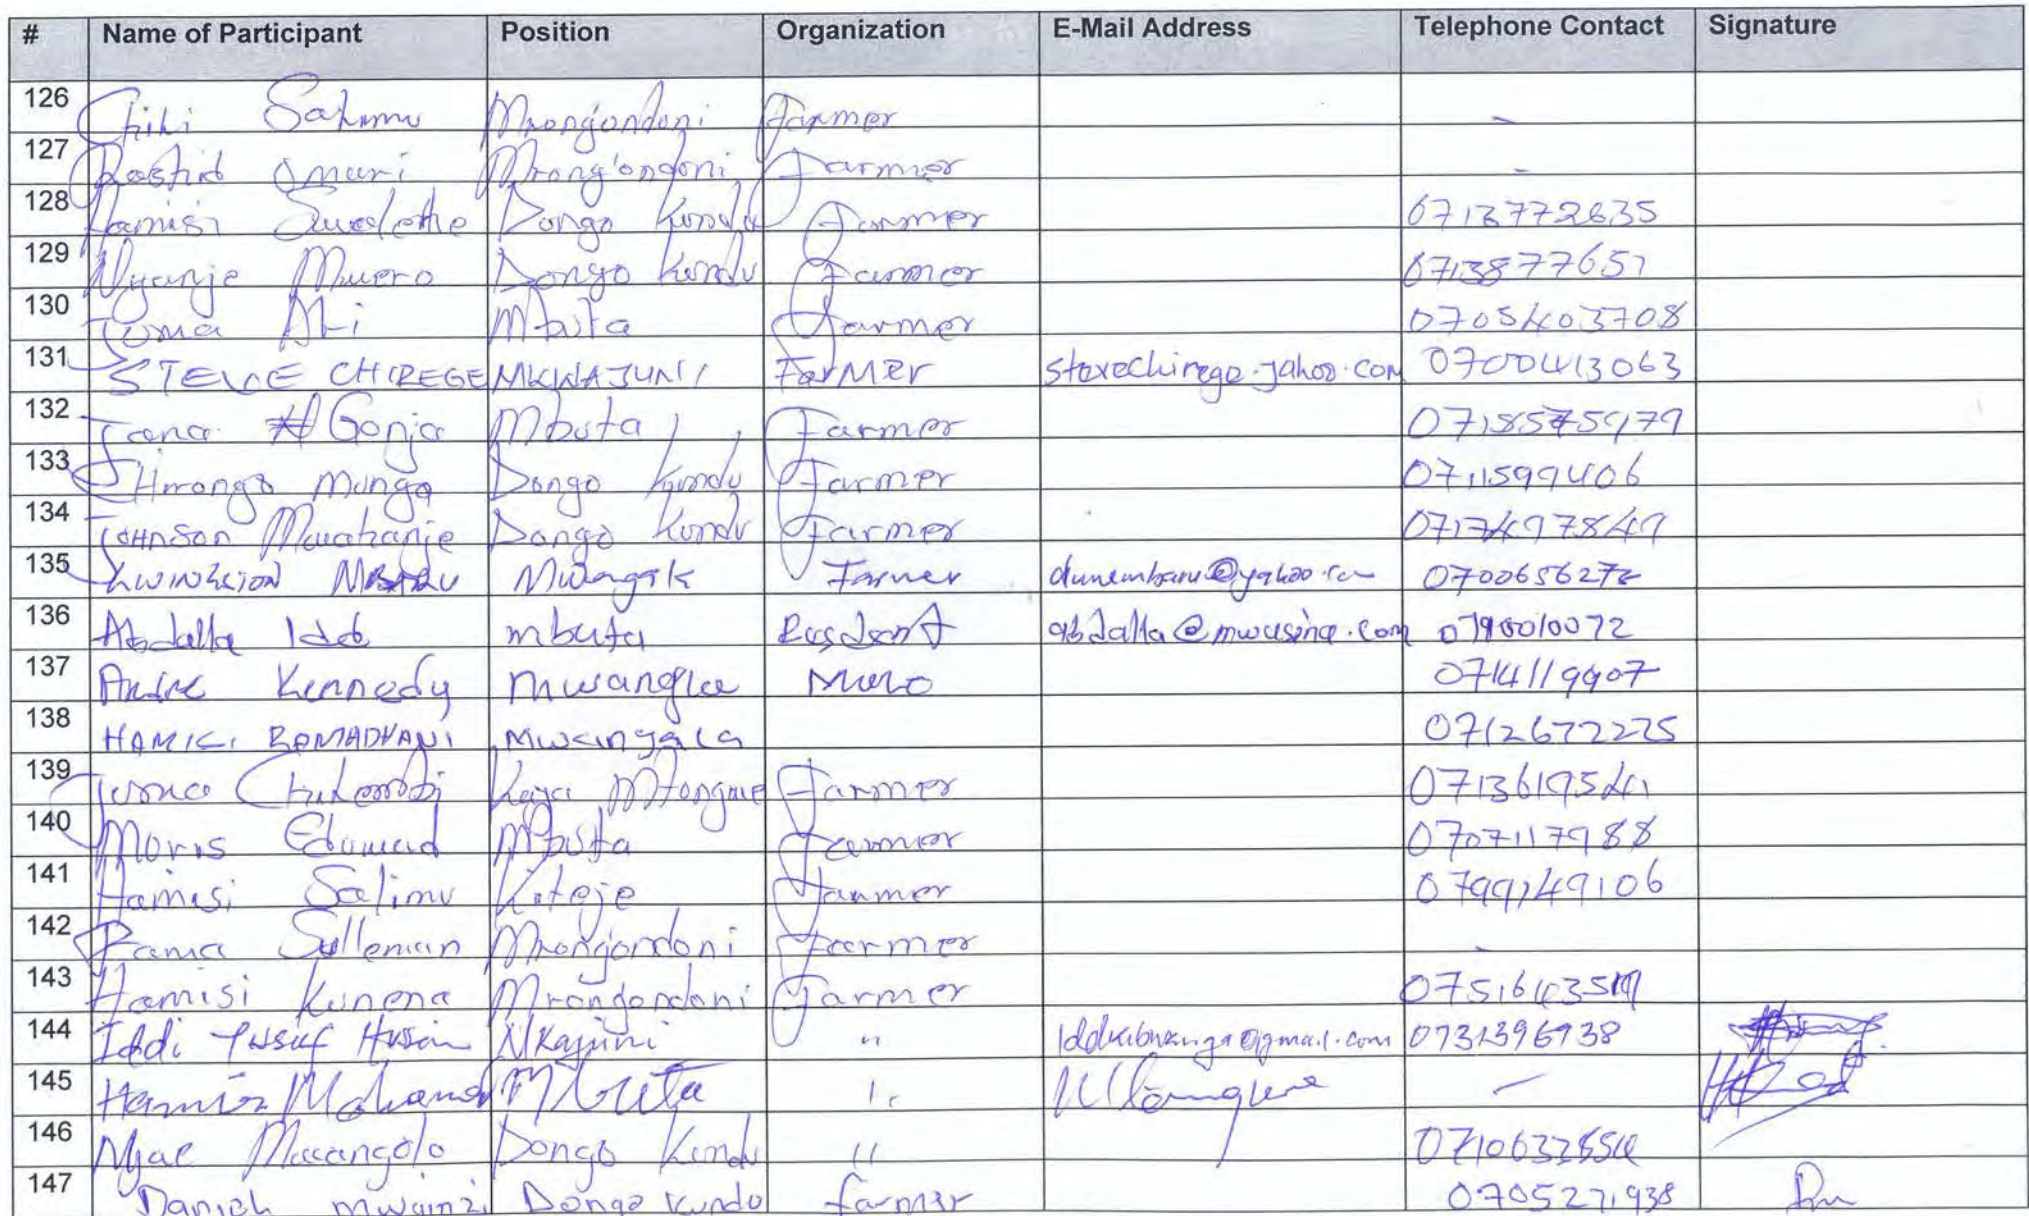 # Name of Participant Position Organization E-Mail Address Telephone Contact Signature
126 Chihi Salimu Mrongondoni Farmer -
127 Rashid Omari Mrong'ondoni Farmer -
128 Hamisi Swalehe Dongo Kundu Farmer 0713772635
129 Nyanje Mwero Dongo Kundu Farmer 0713877651
130 Juma Ali Mbuta Farmer 0705403708
131 STEVE CHIREGE MKWAJUNI FarMer stevechirege.yahoo.com 0700413063
132 Gonja Mbuta Farmer
133 Munga Dongo Kundu Farmer 0711599406
134 JOHNSON Mwachanje Dongo Kundu Farmer 0717497849
135 Farmer 0700656272
136 Abdalla Idd mbuta abdalla@mwusina.com 0790010072
137 Andre Kennedy 0714119907
138 RAMADHANI Mwangala 0712672225
139 Juma Kaya Mtongwe Farmer 0713619541
140 Moris Edward Mbuta Farmer 0707117988
141 Hamisi Salimu Kiteje Farmer 0799149106
142 Rama Sulleman Mrongondoni Farmer -
143 Hamisi Kunena Mrongondoni Farmer
144 Iddi Yusuf Husein Mkajuni " 0731396938
145 Mohamed Mbuta " -
146 Dongo Kundu "
147 Daniel Mwainzi Dongo Kundu farmer 0705271938